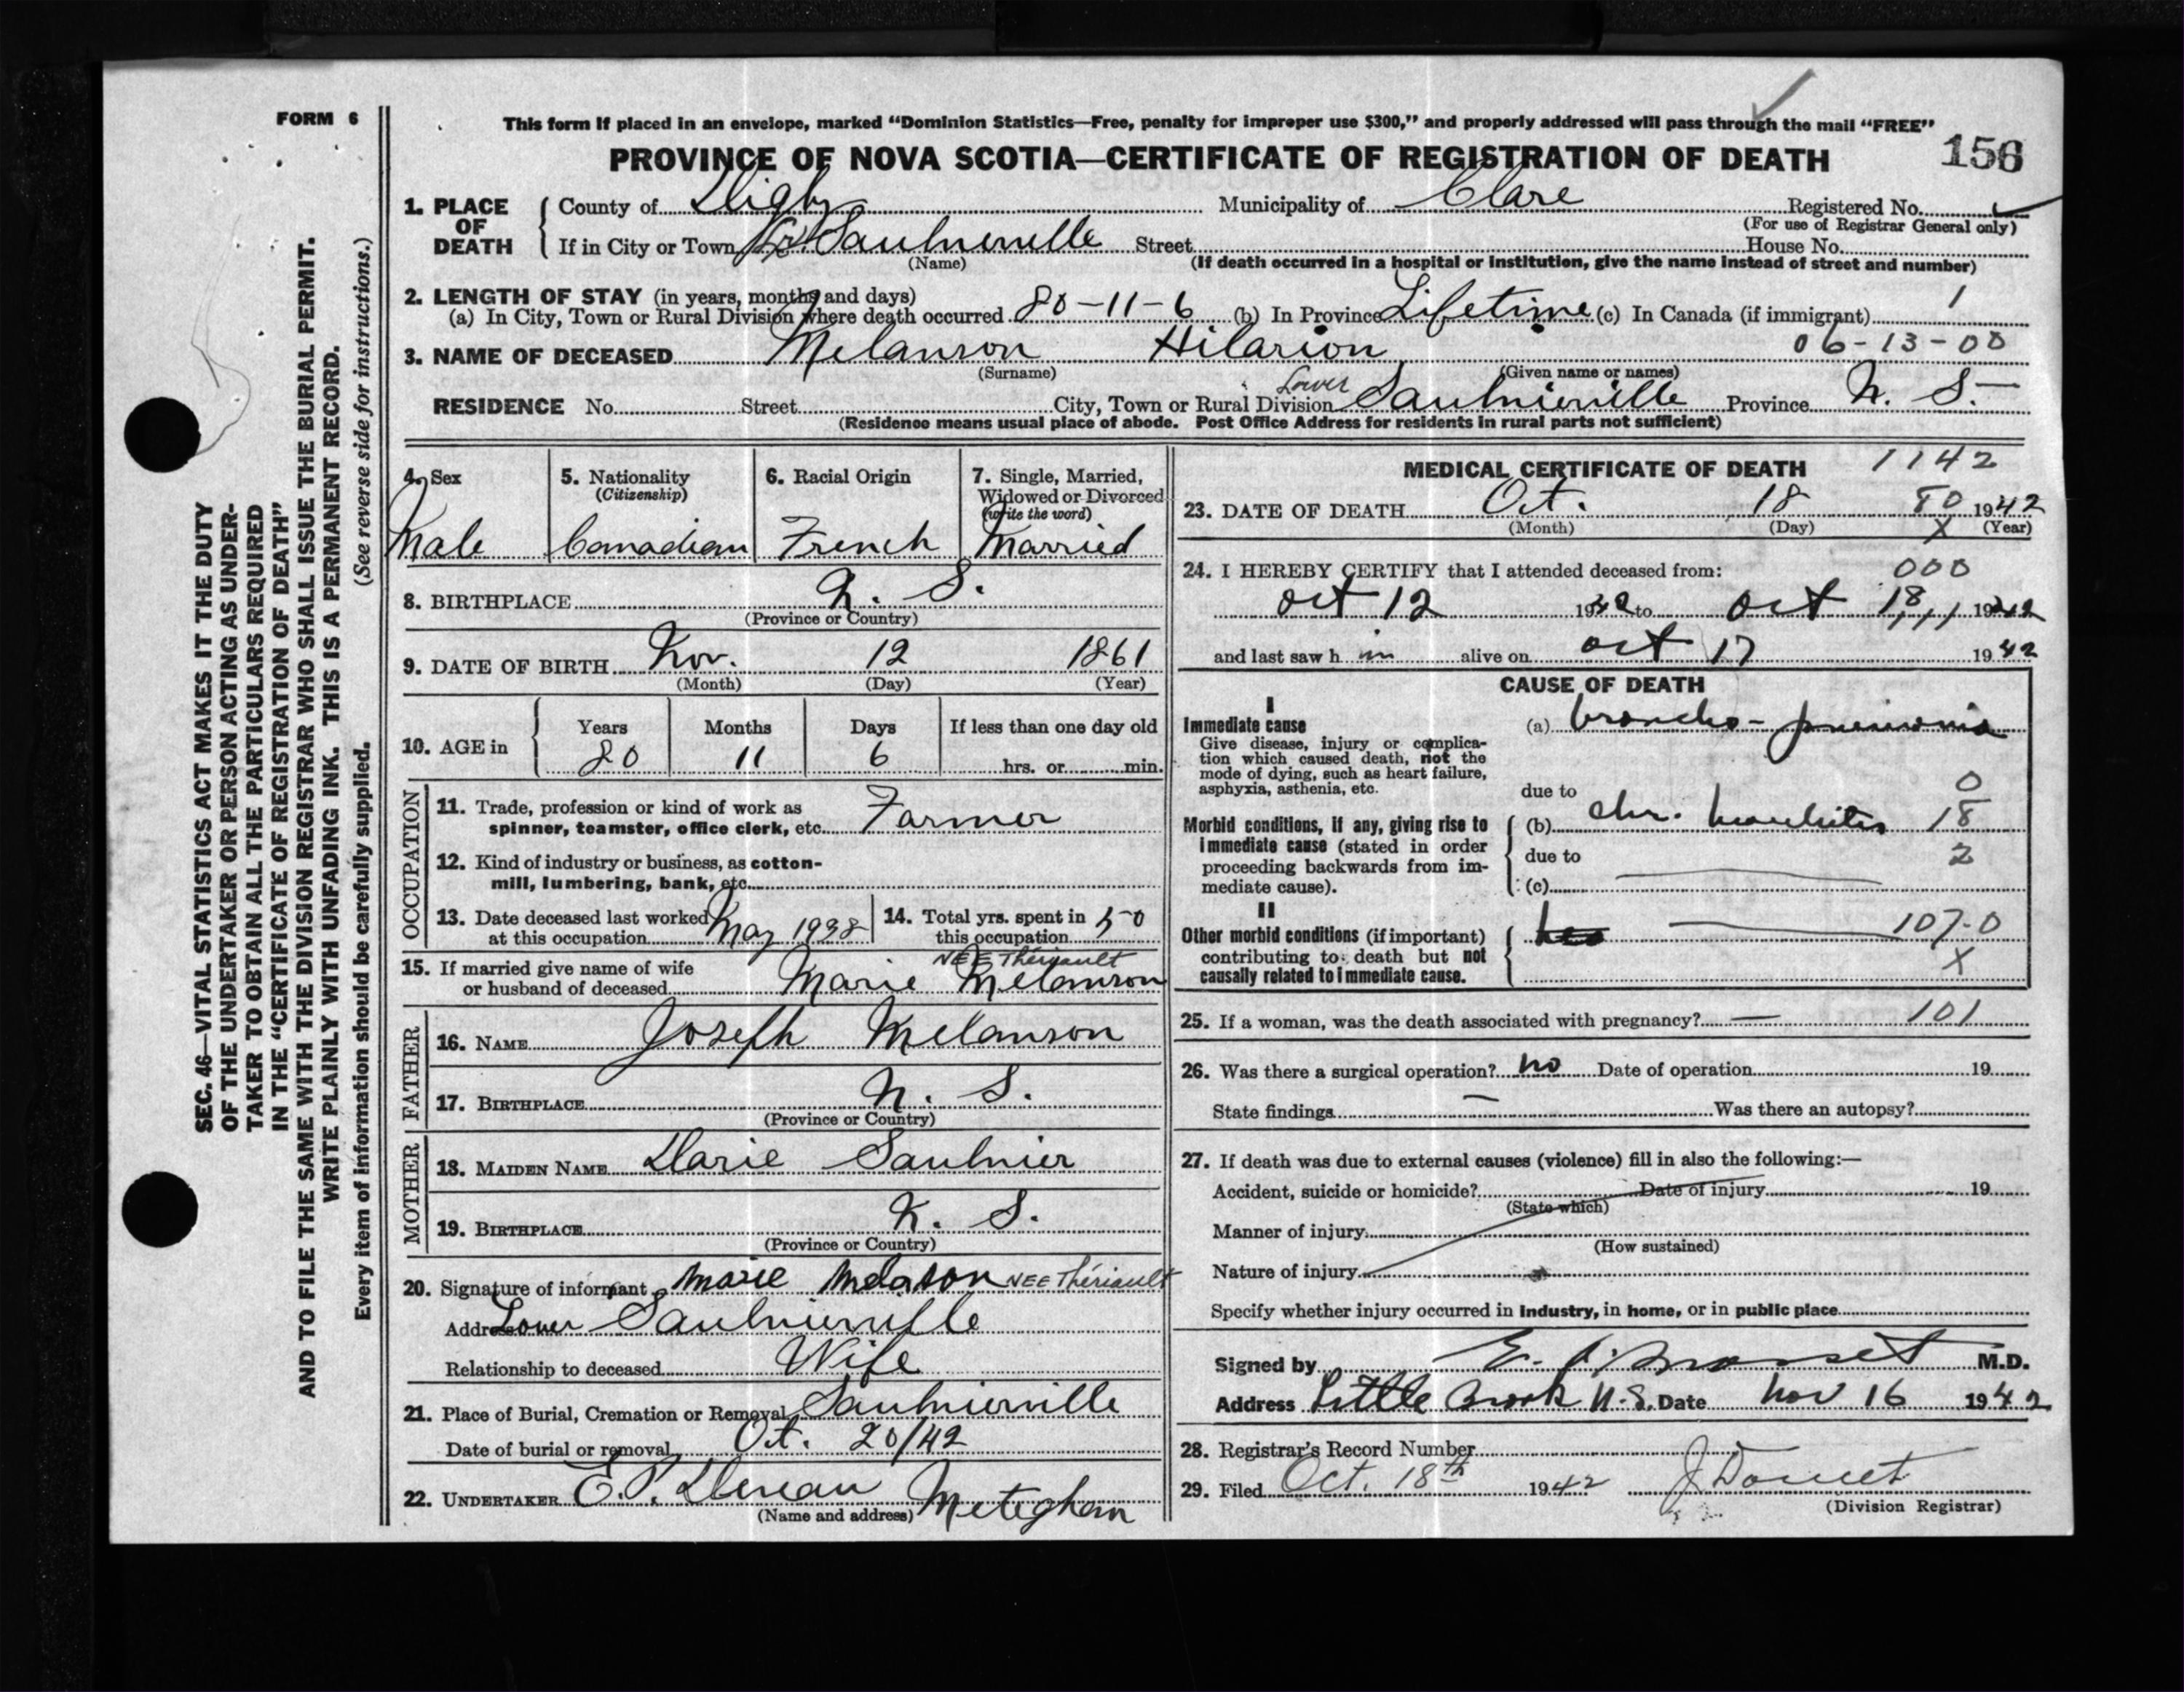 FORM 6
This form if placed in an envelope, marked “Dominion Statistics—Free, penalty for improper use $300,” and properly addressed will pass through the mail “FREE”
PROVINCE OF NOVA SCOTIA—CERTIFICATE OF REGISTRATION OF DEATH
156
1. PLACE OF DEATH
County of Digby Municipality of Clare Registered No.
(For use of Registrar General only)
If in City or Town Lr. Saulnierville Street House No.
(Name) (If death occurred in a hospital or institution, give the name instead of street and number)
2. LENGTH OF STAY (in years, months and days)
(a) In City, Town or Rural Division where death occurred 80-11-6 (b) In Province Lifetime (c) In Canada (if immigrant) 1
3. NAME OF DECEASED Melanson Hilarion 06-13-00
(Surname) (Given name or names)
RESIDENCE No. Street City, Town or Rural Division Lower Saulnierville Province N. S.
(Residence means usual place of abode. Post Office Address for residents in rural parts not sufficient)
4. Sex
Male
5. Nationality
(Citizenship)
Canadian
6. Racial Origin
French
7. Single, Married,
Widowed or Divorced
(write the word)
Married
8. BIRTHPLACE N. S.
(Province or Country)
9. DATE OF BIRTH Nov. 12 1861
(Month) (Day) (Year)
10. AGE in
Years Months Days If less than one day old
80 11 6 hrs. or min.
OCCUPATION
11. Trade, profession or kind of work as
spinner, teamster, office clerk, etc. Farmer
12. Kind of industry or business, as cotton-
mill, lumbering, bank, etc.
13. Date deceased last worked
at this occupation May 1938
14. Total yrs. spent in
this occupation 50
15. If married give name of wife
or husband of deceased Marie Melanson
NEE Thériault
FATHER
16. NAME Joseph Melanson
17. BIRTHPLACE N. S.
(Province or Country)
MOTHER
18. MAIDEN NAME Marie Saulnier
19. BIRTHPLACE N. S.
(Province or Country)
20. Signature of informant Marie Melason NEE Thériault
Address Lower Saulnierville
Relationship to deceased Wife
21. Place of Burial, Cremation or Removal Saulnierville
Date of burial or removal Oct. 20/42
22. UNDERTAKER E. P. Meteghan
(Name and address)
MEDICAL CERTIFICATE OF DEATH 1142
23. DATE OF DEATH Oct. 18 80 1942
(Month) (Day) X (Year)
24. I HEREBY CERTIFY that I attended deceased from: 000
Oct 12 1942 to Oct 18 1942
and last saw h im alive on Oct 17 1942
CAUSE OF DEATH
I
Immediate cause
Give disease, injury or complica-
tion which caused death, not the
mode of dying, such as heart failure,
asphyxia, asthenia, etc.
(a) broncho-pneumonia
due to 0
Morbid conditions, if any, giving rise to
immediate cause (stated in order
proceeding backwards from im-
mediate cause).
(b) chr. bronchitis 18
due to 2
(c)
II
Other morbid conditions (if important)
contributing to death but not
causally related to immediate cause.
107-0
X
25. If a woman, was the death associated with pregnancy? — 101
26. Was there a surgical operation? no Date of operation 19
State findings — Was there an autopsy?
27. If death was due to external causes (violence) fill in also the following:—
Accident, suicide or homicide? Date of injury 19
(State which)
Manner of injury
(How sustained)
Nature of injury
Specify whether injury occurred in industry, in home, or in public place
Signed by M.D.
Address Little Brook N.S. Date Nov 16 1942
28. Registrar's Record Number
29. Filed Oct. 18th 1942 J Doucet
(Division Registrar)
SEC. 46—VITAL STATISTICS ACT MAKES IT THE DUTY
OF THE UNDERTAKER OR PERSON ACTING AS UNDER-
TAKER TO OBTAIN ALL THE PARTICULARS REQUIRED
IN THE “CERTIFICATE OF REGISTRATION OF DEATH”
AND TO FILE THE SAME WITH THE DIVISION REGISTRAR WHO SHALL ISSUE THE BURIAL PERMIT.
WRITE PLAINLY WITH UNFADING INK. THIS IS A PERMANENT RECORD.
Every item of information should be carefully supplied. (See reverse side for instructions.)